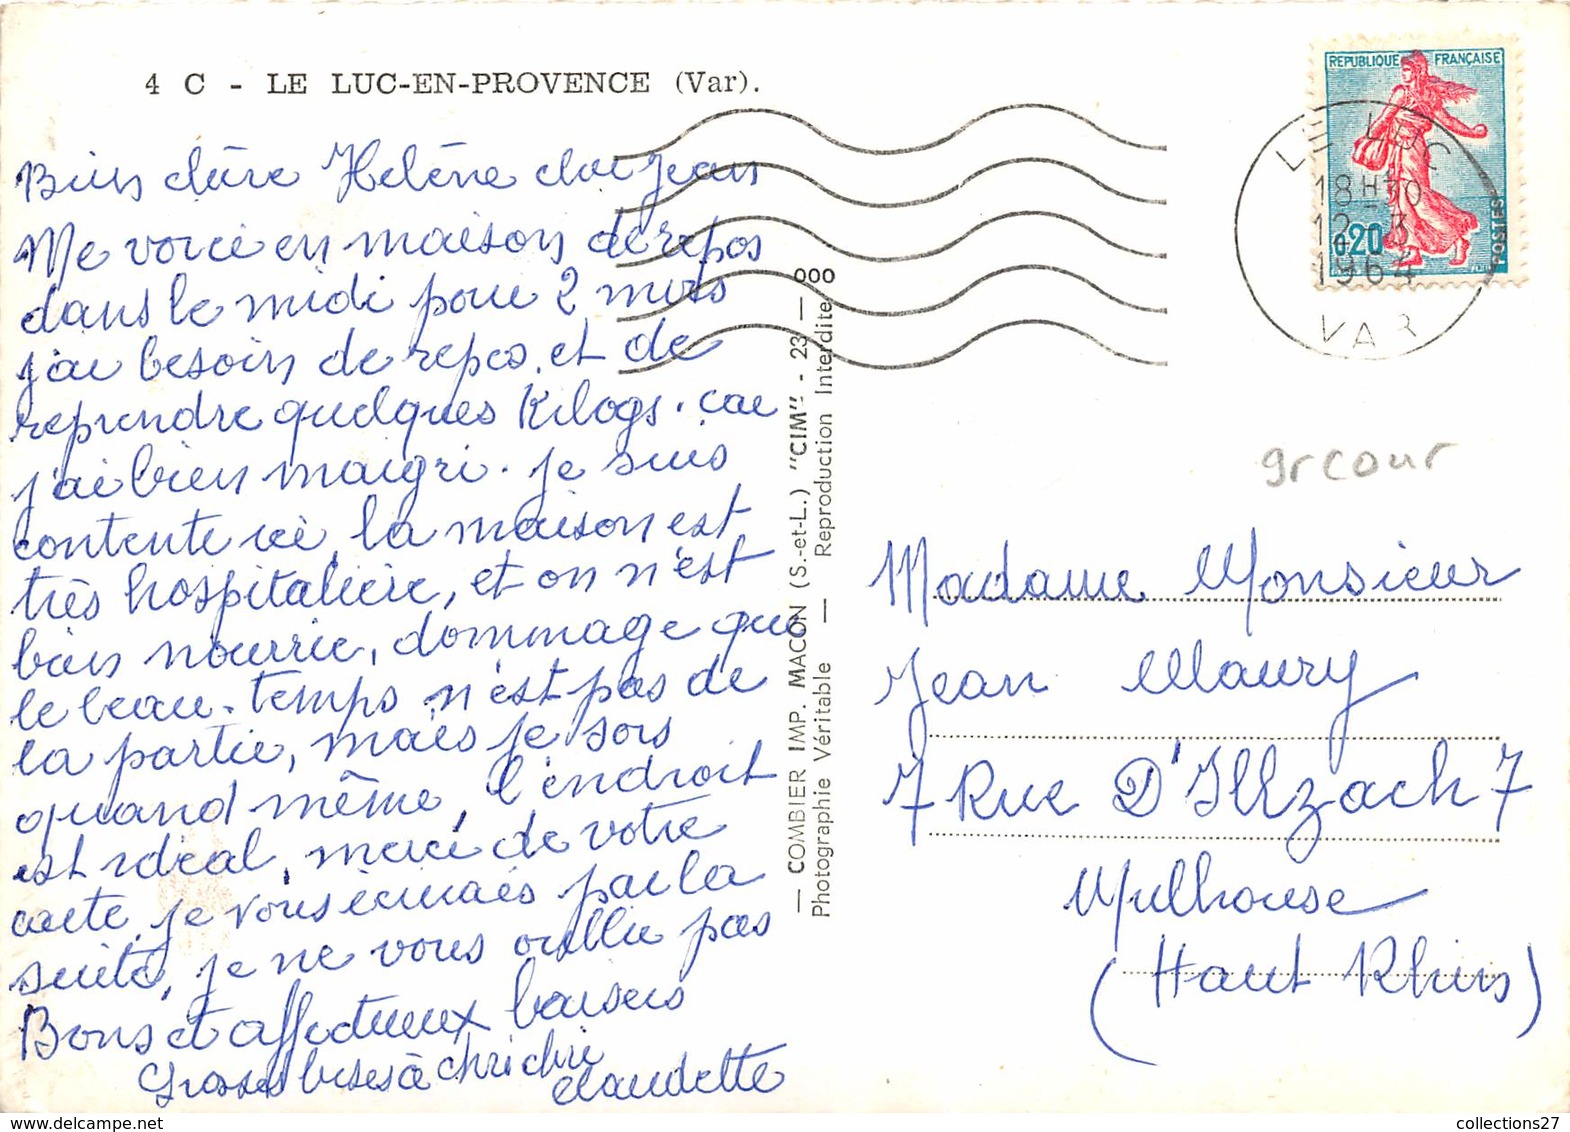 4 C - LE LUC-EN-PROVENCE (Var).
Bien chère Helène cher Jean
Me voici en maison de repos
dans le midi pour 2 mois
j'ai besoin de repos, et de
reprendre quelques Kilogs. car
j'ai bien maigri. je suis
contente ici, la maison est
très hospitalière, et on n'est
bien nourrie, dommage que
le beau-temps n'est pas de
la partie, mais je sors
quand même, l'endroit
est idéal, merci de votre
carte, je vous écrirais par la
suite, je ne vous oublie pas
Bons et affectueux baisers
Grosses bises à chrichri
Claudette
— COMBIER IMP. MACON (S.-et-L.) "CIM" - 23 —
Photographie Véritable — Reproduction Interdite
REPUBLIQUE FRANÇAISE
0,20
POSTES
LE LUC
18H30
12-3
1964
VAR
grcour
Madame Monsieur
Jean Maury
7 Rue D'Illzach 7
Mulhouse
(Haut Rhin)
collections27